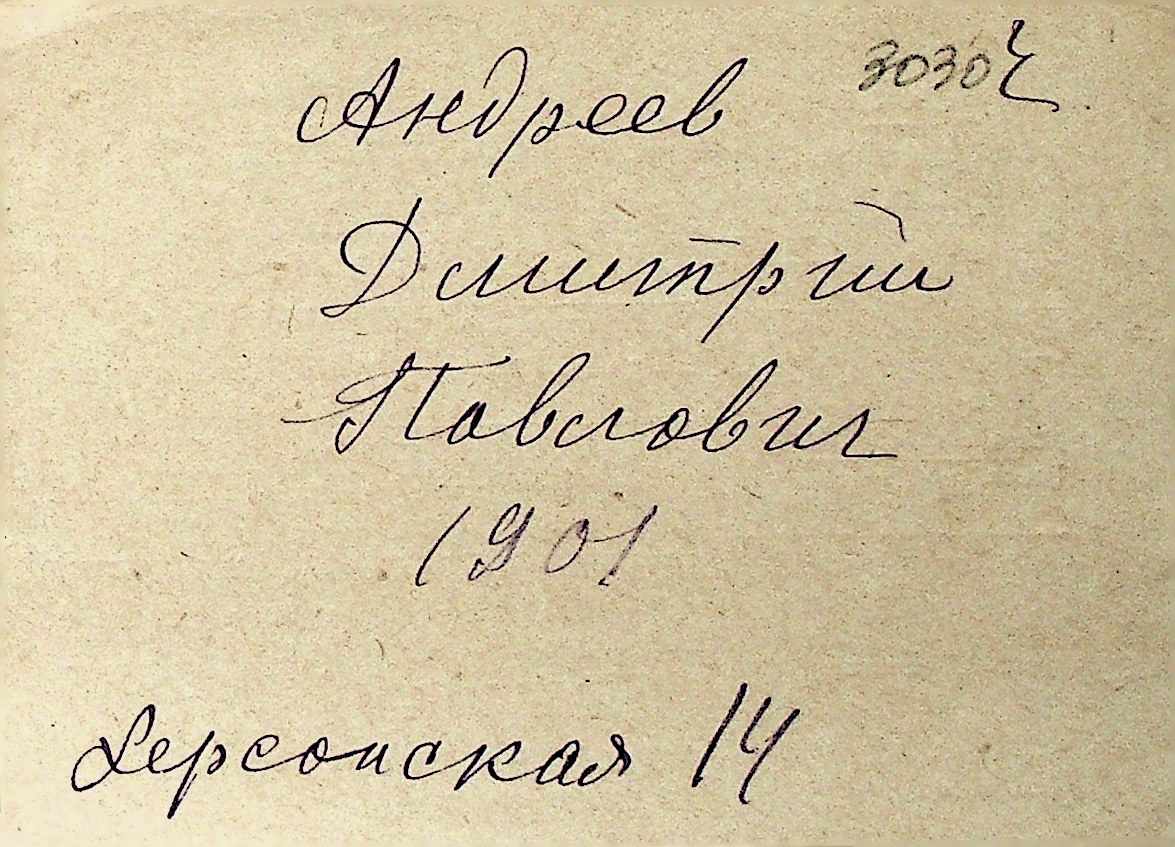 30304
Андреев
Дмитрий
Павлович
1901
Херсонская 14